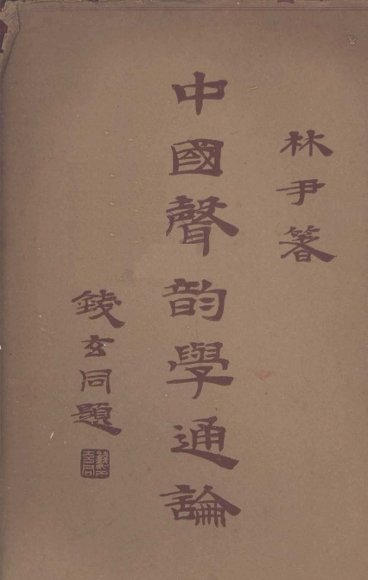 林尹箸
中國聲韵學通論
錢玄同題